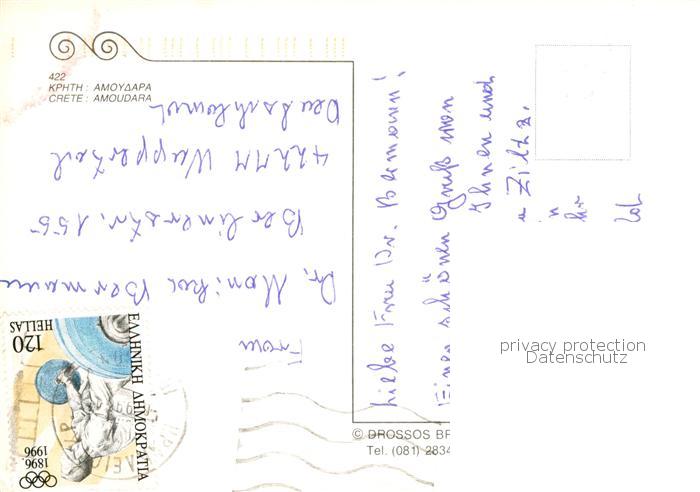 422
ΚΡΗΤΗ : ΑΜΟΥΔΑΡΑ
CRETE : AMOUDARA
Frau
Dr. Monika Bermann
Berlinerstr. 155
Wuppertal
Deutschland
Liebe Frau Dr. Bermann!
Einen schönen Gruß von
Ihnen und
privacy protection
Datenschutz
© DROSSOS BR
Tel. (081) 2834
ΕΛΛΗΝΙΚΗ ΔΗΜΟΚΡΑΤΙΑ
120
HELLAS
1896
1996